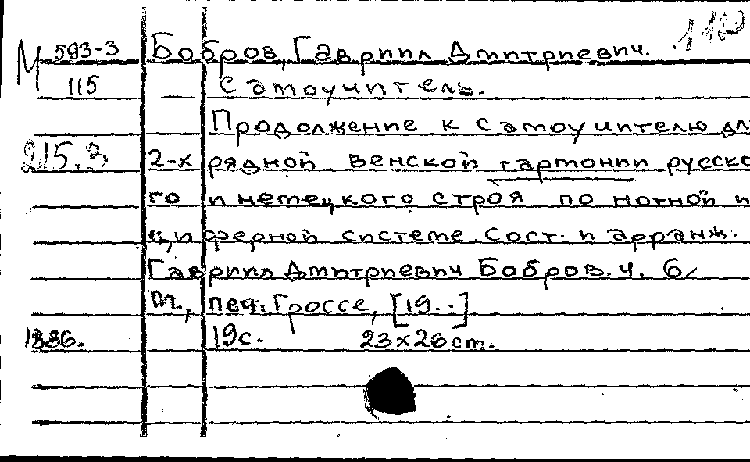 М 593-3 Бобров, Гавриил Дмитриевич.
115 — Самоучитель.
Продолжение к Самоучителю дл
215.3 2-х рядной венской гармонии русско
го и немецкого строя по нотной и
цифферной системе. Сост. и арранж.
Гавриил Дмитриевич Бобров. ч. 6.
М., печ. Гроссе, [19..]
1886. 19с. 23х26 cm.